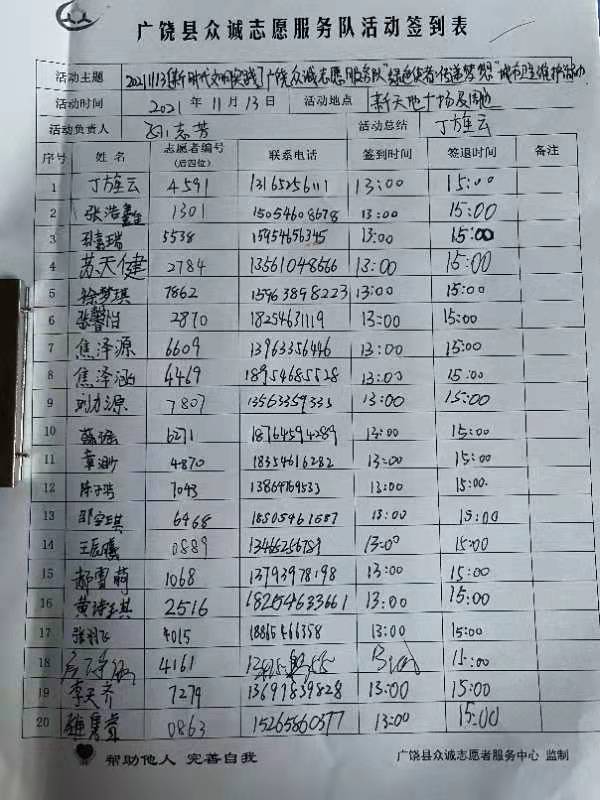 广饶县众诚志愿服务队活动签到表
活动主题 20211113[新时代文明实践]广饶众诚志愿服务队"绿色使者·传递梦想"城市卫生维护活动
活动时间 2021年11月13日 活动地点 新天地广场及周边
活动负责人 志芳 活动总结 丁旌云
序号 姓名 志愿者编号(后四位) 联系电话 签到时间 签退时间 备注
1 丁旌云 4591 13165256111 13:00 15:00
2 张浩 1301 15054608678 13:00 15:00
3 瑞 5538 15954656345 13:00 15:00
4 苏天健 2784 13561048666 13:00 15:00
5 徐梦琪 7862 15963898223 13:00 15:00
6 张馨怡 2870 18254631119 13:00 15:00
7 焦泽源 6609 13963356446 13:00 15:00
8 焦泽涵 4469 18954685528 13:00 15:00
9 刘力源 7807 13563359333 13:00 15:00
10 6271 18764594289 13:00 15:00
11 4870 18354616282 13:00 15:00
12 陈子 7043 13864769533 13:00 15:00
13 琪 6468 18505461687 13:00 15:00
14 王辰曦 0889 13466256789 13:00 15:00
15 郝雪萌 1068 13793978198 13:00 15:00
16 黄诗琪 2516 182654633661 13:00 15:00
17 张羽飞 4015 18865466358 13:00 15:00
18 4161 15:00
19 李天齐 7279 13697839828 13:00 15:00
20 0863 15265860377 13:00 15:00
帮助他人 完善自我 广饶县众诚志愿者服务中心 监制